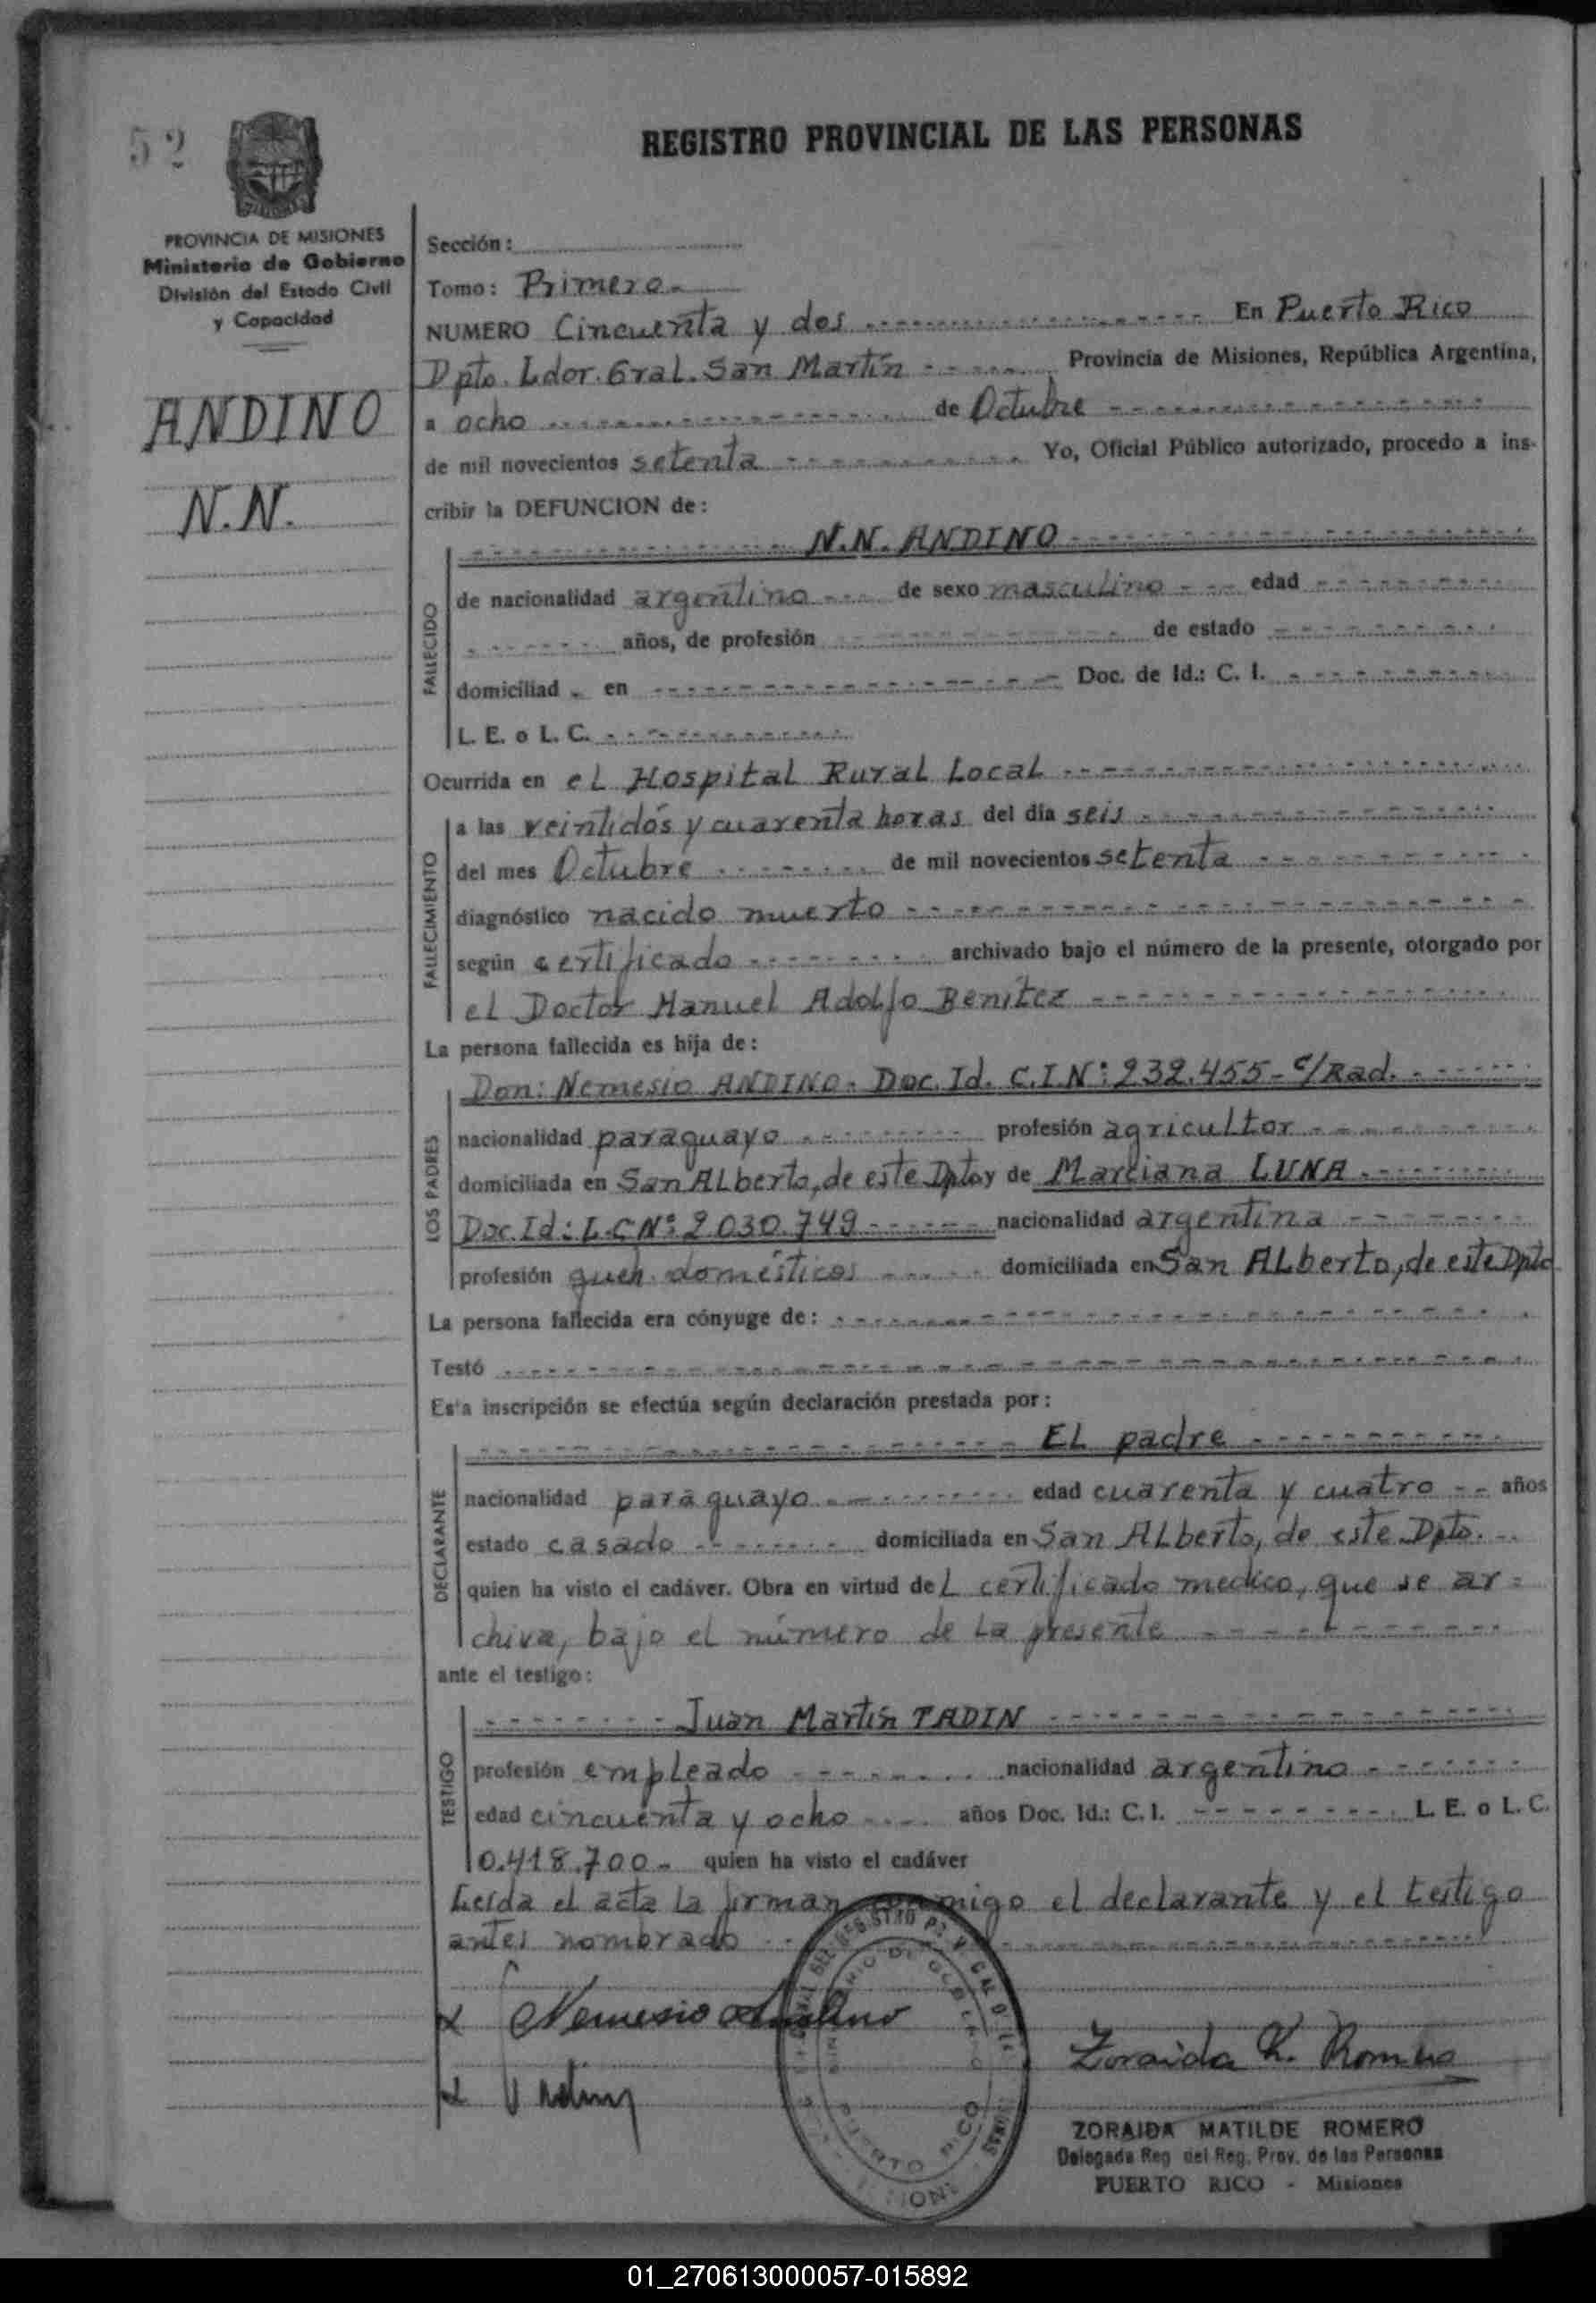 52
REGISTRO PROVINCIAL DE LAS PERSONAS
PROVINCIA DE MISIONES
Ministerio de Gobierno
División del Estado Civil
y Capacidad
ANDINO
N.N.
Sección:
Tomo: Primero.
NUMERO Cincuenta y dos En Puerto Rico
Dpto. Ldor. Gral. San Martín Provincia de Misiones, República Argentina,
a ocho de Octubre
de mil novecientos setenta Yo, Oficial Público autorizado, procedo a ins-
cribir la DEFUNCION de:
N.N. ANDINO
FALLECIDO
de nacionalidad argentino de sexo masculino edad
años, de profesión de estado
domiciliad en Doc. de Id.: C. I.
L. E. o L. C.
Ocurrida en el Hospital Rural Local
FALLECIMIENTO
a las veintidós y cuarenta horas del día seis
del mes Octubre de mil novecientos setenta
diagnóstico nacido muerto
según certificado archivado bajo el número de la presente, otorgado por
el Doctor Manuel Adolfo Benítez
La persona fallecida es hija de:
LOS PADRES
Don: Nemesio ANDINO. Doc. Id. C.I.Nº: 232.455- c/Rad.
nacionalidad paraguayo profesión agricultor
domiciliada en San Alberto, de este Dpto y de Marciana LUNA
Doc. Id: L.C Nº: 2.030.749 nacionalidad argentina
profesión queh. domésticos domiciliada en San Alberto, de este Dpto
La persona fallecida era cónyuge de:
Testó
Esta inscripción se efectúa según declaración prestada por:
El padre
DECLARANTE
nacionalidad paraguayo edad cuarenta y cuatro años
estado casado domiciliada en San Alberto, de este Dpto.
quien ha visto el cadáver. Obra en virtud del certificado medico, que se ar=
chiva, bajo el número de la presente
ante el testigo:
TESTIGO
Juan Martín TADIN
profesión empleado nacionalidad argentino
edad cincuenta y ocho años Doc. Id.: C. I. L. E. o L. C.
0.418.700- quien ha visto el cadáver
Leída el acta la firman conmigo el declarante y el testigo
antes nombrado
x Nemesio Andino
x
Zoraida M. Romero
PUERTO RICO
ZORAIDA MATILDE ROMERO
Delegada Reg del Reg. Prov. de las Personas
PUERTO RICO - Misiones
01_270613000057-015892